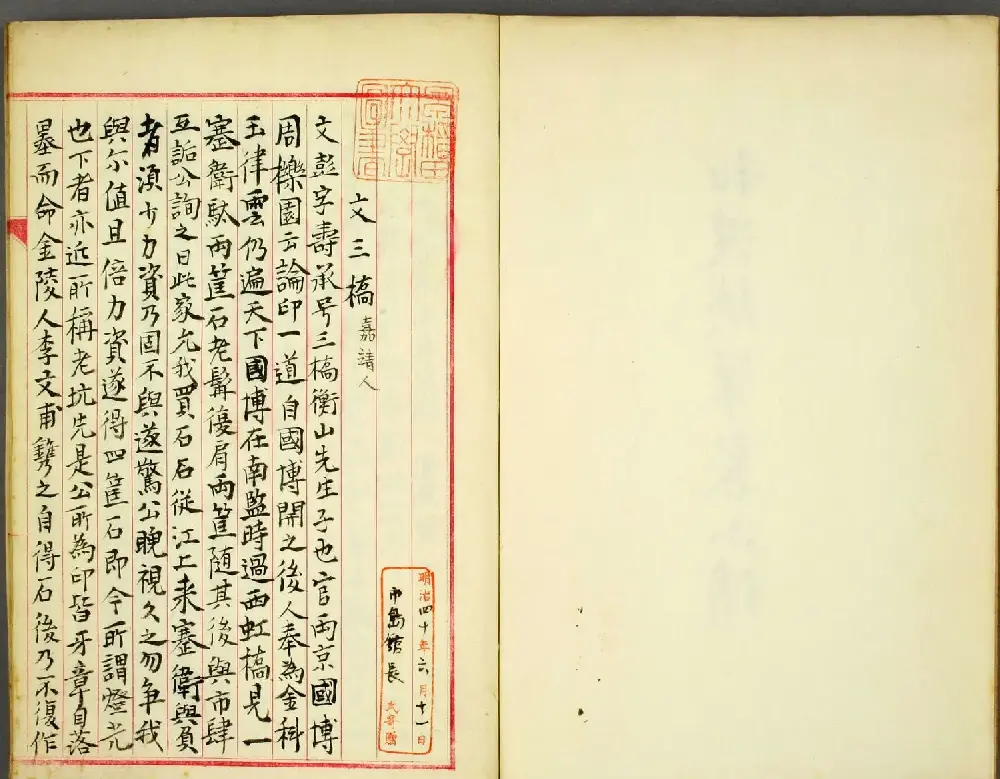 早稲田大學圖書
明治四十年六月十一日
市島館長
氏寄贈
文三橋 嘉請人
文彭字壽承号三橋衡山先生子也官兩京國博
周櫟園云論印一道自國博開之後人奉為金科
玉律雲仍遍天下國博在南監時過西虹橋見一
蹇衛馱兩筐石老髯復肩兩筐随其後與市肆
互詬公詢之曰此家允我買石石從江上来蹇衛與負
者湏少力資乃固不與遂驚公睨視久之勿争我
與尓值且倍力資遂得四筐石即今所謂燈光
也下者亦近所稱老坑先是公所為印皆牙章自落
墨而命金陵人李文甫鐫之自得石後乃不復作